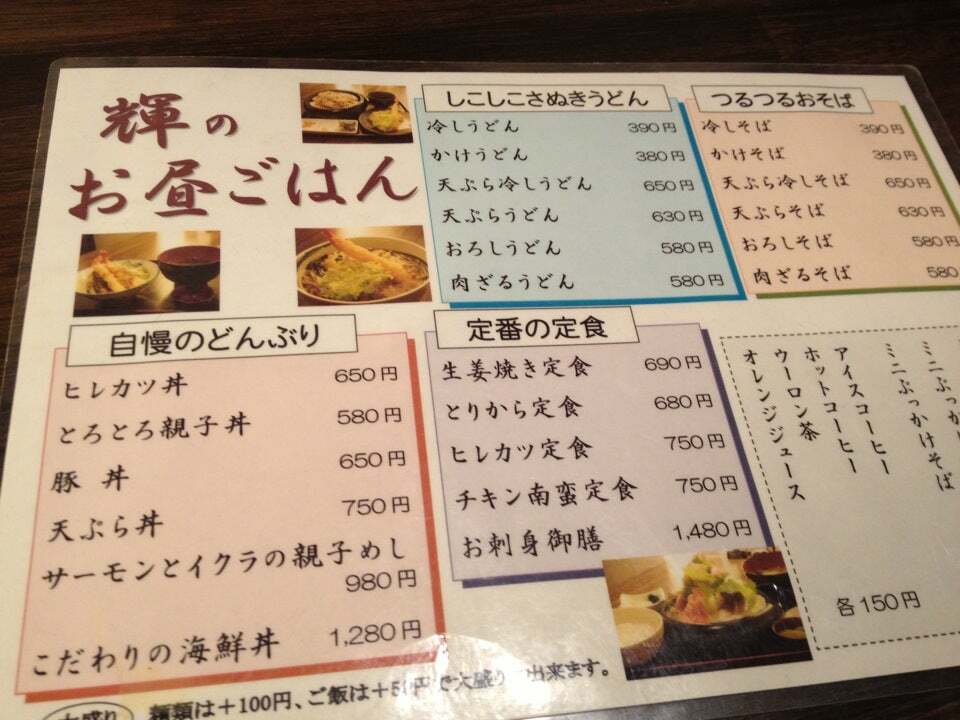 輝の
お昼ごはん
しこしこさぬきうどん
冷しうどん 390円
かけうどん 380円
天ぷら冷しうどん 650円
天ぷらうどん 630円
おろしうどん 580円
肉ざるうどん 580円
つるつるおそば
冷しそば 390円
かけそば 380円
天ぷら冷しそば 650円
天ぷらそば 630円
おろしそば 580円
肉ざるそば 580
自慢のどんぶり
ヒレカツ丼 650円
とろとろ親子丼 580円
豚丼 650円
天ぷら丼 750円
サーモンとイクラの親子めし
980円
こだわりの海鮮丼 1,280円
定番の定食
生姜焼き定食 690円
とりから定食 680円
ヒレカツ定食 750円
チキン南蛮定食 750円
お刺身御膳 1,480円
ミニぶっかけそば
アイスコーヒー
ホットコーヒー
ウーロン茶
オレンジジュース
各150円
麺類は+100円、ご飯は+50円で大盛り 出来ます。